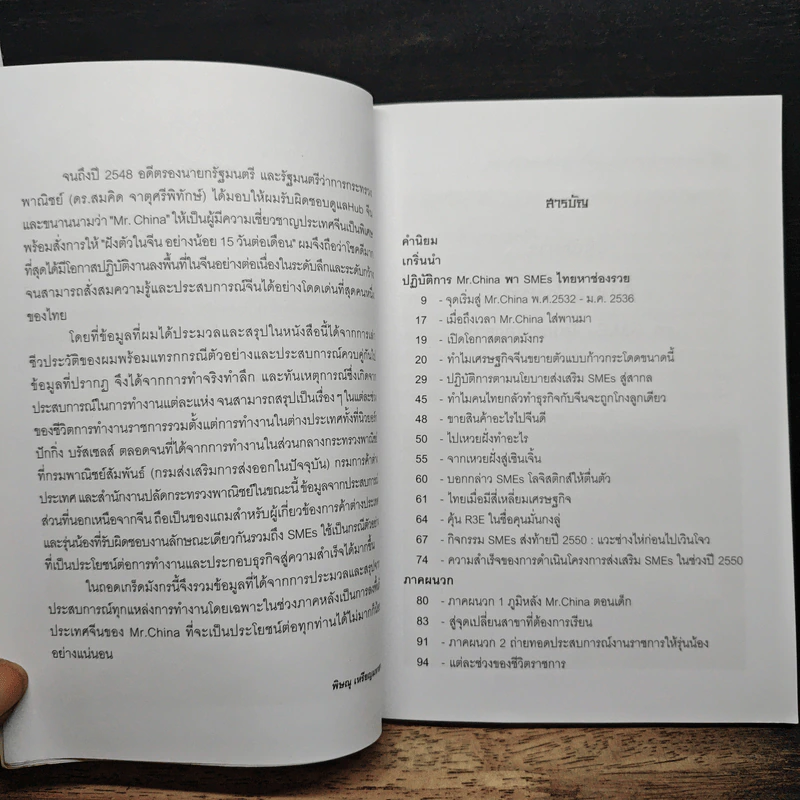 จนถึงปี 2548 อดีตรองนายกรัฐมนตรี และรัฐมนตรีว่าการกระทรวง
พาณิชย์ (ดร.สมคิด จาตุศรีพิทักษ์) ได้มอบให้ผมรับผิดชอบดูแลHub จีน
และขนานนามว่า "Mr. China" ให้เป็นผู้มีความเชี่ยวชาญประเทศจีนเป็นพิเศษ
พร้อมสั่งการให้ "ฝังตัวในจีน อย่างน้อย 15 วันต่อเดือน" ผมจึงถือว่าโชคดีมาก
ที่สุดได้มีโอกาสปฏิบัติงานลงพื้นที่ในจีนอย่างต่อเนื่องในระดับลึกและระดับกว้าง
จนสามารถสั่งสมความรู้และประสบการณ์จีนได้อย่างโดดเด่นที่สุดคนหนึ่ง
ของไทย
โดยที่ข้อมูลที่ผมได้ประมวลและสรุปในหนังสือนี้ได้จากการเล่า
ชีวประวัติของผมพร้อมแทรกกรณีตัวอย่างและประสบการณ์ควบคู่กันไป
ข้อมูลที่ปรากฏ จึงได้จากการทำจริงทำลึก และทันเหตุการณ์ซึ่งเกิดจาก
ประสบการณ์ในการทำงานแต่ละแห่ง จนสามารถสรุปเป็นเรื่อง ๆ ในแต่ละช่วง
ของชีวิตการทำงานราชการรวมตั้งแต่การทำงานในต่างประเทศทั้งที่นิวยอร์ค
ปักกิ่ง บรัสเซลส์ ตลอดจนที่ได้จากการทำงานในส่วนกลางกระทรวงพาณิชย์
ที่กรมพาณิชย์สัมพันธ์ (กรมส่งเสริมการส่งออกในปัจจุบัน) กรมการค้าต่าง
ประเทศ และสำนักงานปลัดกระทรวงพาณิชย์ในขณะนี้ ข้อมูลจากประสบการณ์
ส่วนที่นอกเหนือจากจีน ถือเป็นของแถมสำหรับผู้เกี่ยวข้องการค้าต่างประเทศ
และรุ่นน้องที่รับผิดชอบงานลักษณะเดียวกันรวมถึง SMEs ใช้เป็นกรณีตัวอย่าง
ที่เป็นประโยชน์ต่อการทำงานและประกอบธุรกิจสู่ความสำเร็จได้มากขึ้น
ในถอดเกร็ดมังกรนี้จึงรวมข้อมูลที่ได้จากการประมวลและสรุปจาก
ประสบการณ์ทุกแหล่งการทำงานโดยเฉพาะในช่วงภาคหลังเป็นการลงพื้นที่
ประเทศจีนของ Mr.China ที่จะเป็นประโยชน์ต่อทุกท่านได้ไม่มากก็น้อย
อย่างแน่นอน
พิษณุ
สารบัญ
คำนิยม
เกริ่นนำ
ปฏิบัติการ Mr.China พา SMEs ไทยหาช่องรวย
9 - จุดเริ่มสู่ Mr.China พ.ศ.2532 - ม.ค. 2536
17 - เมื่อถึงเวลา Mr.China ใส่พานมา
19 - เปิดโอกาสตลาดมังกร
20 - ทำไมเศรษฐกิจจีนขยายตัวแบบก้าวกระโดดขนาดนี้
29 - ปฏิบัติการตามนโยบายส่งเสริม SMEs สู่สากล
45 - ทำไมคนไทยกลัวทำธุรกิจกับจีนจะถูกโกงลูกเดียว
48 - ขายสินค้าอะไรไปจีนดี
50 - ไปเหวยฝั่งทำอะไร
55 - จากเหวยฝั่งสู่เซินเจิ้น
60 - บอกกล่าว SMEs โลจิสติกส์ให้ตื่นตัว
61 - ไทยเมื่อมีสี่เหลี่ยมเศรษฐกิจ
64 - คุ้น R3E ในชื่อคุนมั่นกงลู่
67 - กิจกรรม SMEs ส่งท้ายปี 2550 : แวะช่างให่ก่อนไปเวินโจว
74 - ความสำเร็จของการดำเนินโครงการส่งเสริม SMEs ในช่วงปี 2550
ภาคผนวก
80 - ภาคผนวก 1 ภูมิหลัง Mr.China ตอนเด็ก
83 - สู่จุดเปลี่ยนสาขาที่ต้องการเรียน
91 - ภาคผนวก 2 ถ่ายทอดประสบการณ์งานราชการให้รุ่นน้อง
94 - แต่ละช่วงของชีวิตราชการ